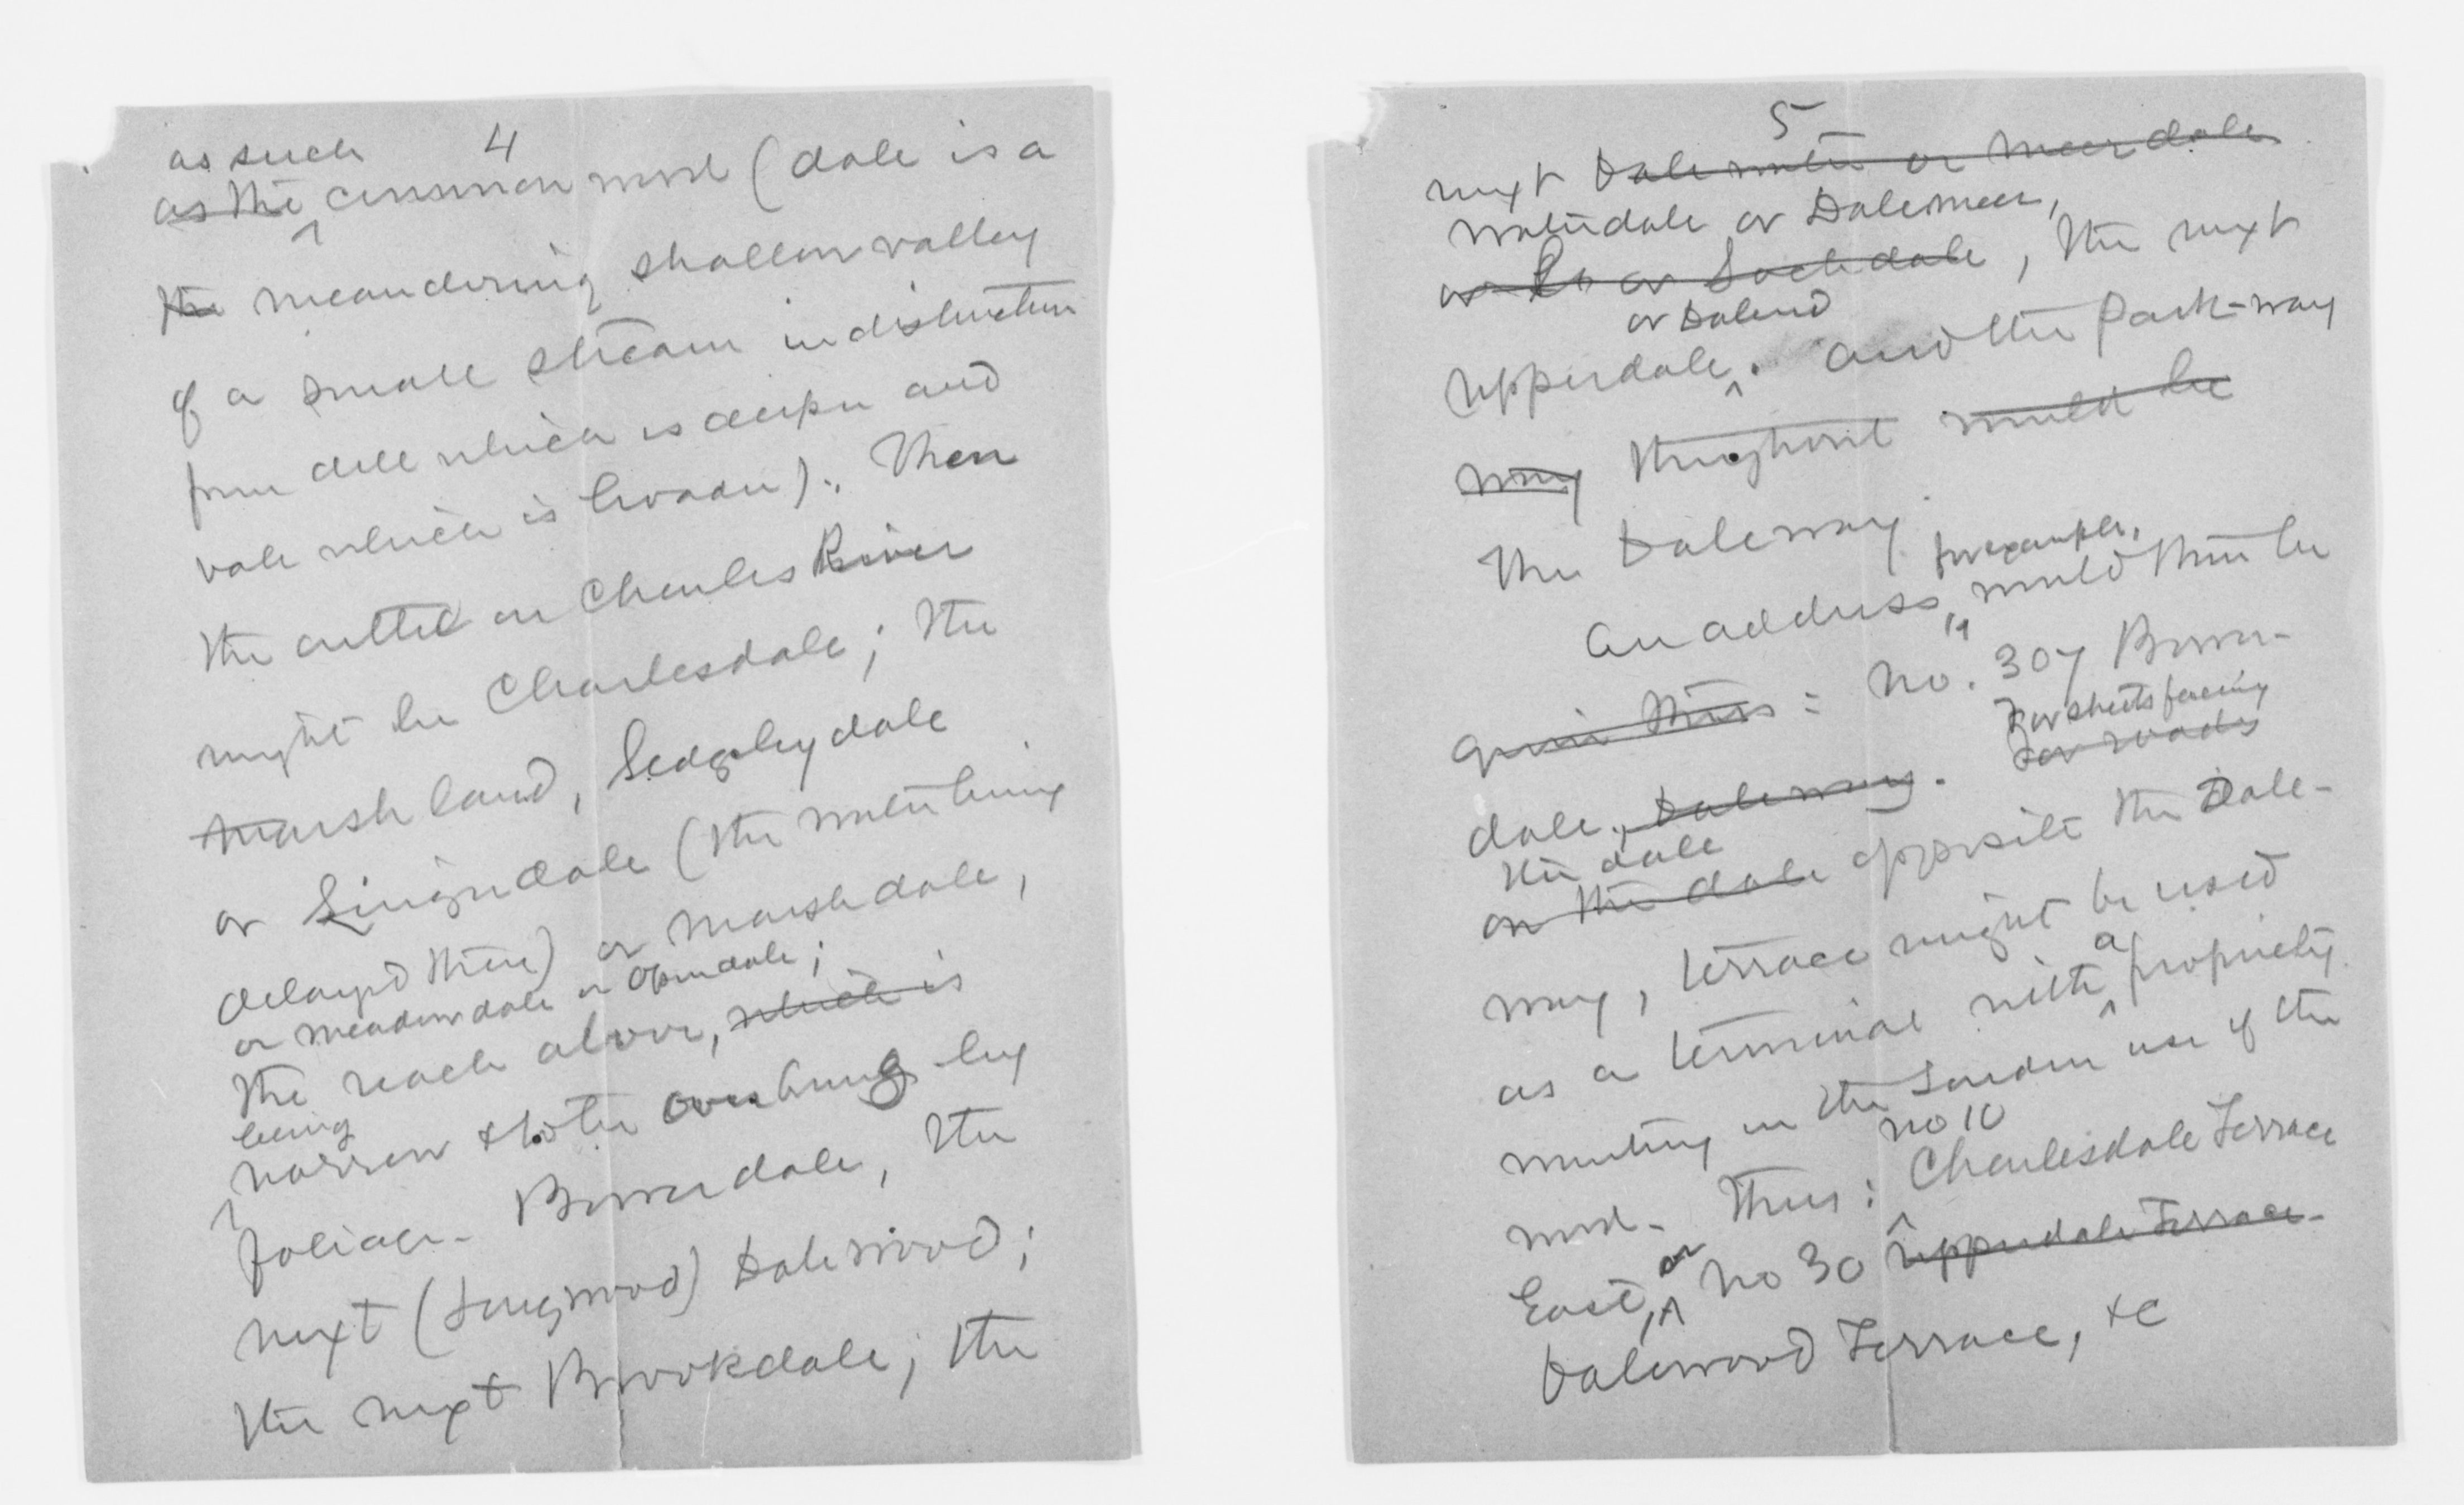 4
as such
as the common word (dale is a
the meandering shallow valley
of a small stream in distinction
from dell which is deeper and
vale which is broader). Then
the outlet on Charles River
might be Charlesdale; the
marsh land, Sedgleydale
or Lingerdale (the water being
delayed there) or Marshdale,
or Meadowdale or Opendale;
the reach above, which is
being
narrow & to be overhung by
foliage - Bowerdale, the
next (Longwood) Dalewood;
the next Brookdale; the
5
next Dalewater or Meerdale
Waterdale or Dalemeer,
or Lo or Lochdale, the next
or Dalend
Upperdale. and the Park-way
way throughout would be
The Daleway.
for example,
An address, would then be
given thus: No. 307 Bower-
For streets facing
For roads
dale, Daleway.
the dale
on the dale opposite the Dale-
way, terrace might be used
as a terminal with a propriety
wanting in the London use of the
No 10
word. Thus: Charlesdale Terrace
East, or No 30 Upperdale Terrace
Dalewood Terrace, &c